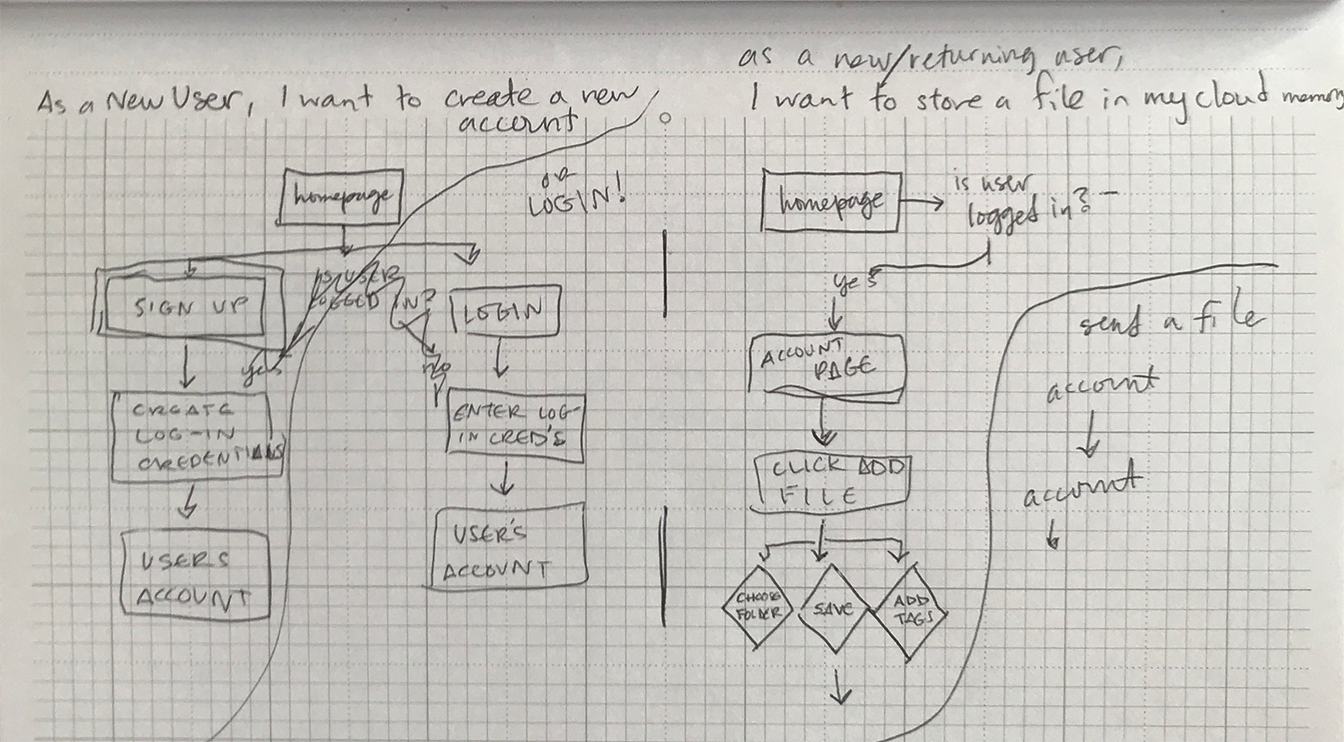 As a New User, I want to create a new
account
or
LOGIN!
homepage
SIGN UP
IS USER
LOGGED IN?
yes
no
LOGIN
CREATE
LOG-IN
CREDENTIALS
ENTER LOG-
IN CRED'S
USERS
ACCOUNT
USER'S
ACCOUNT
as a new/returning user,
I want to store a file in my cloud memory
homepage
is user
logged in?
yes
ACCOUNT
PAGE
CLICK ADD
FILE
CHOOSE
FOLDER
SAVE
ADD
TAGS
send a file
account
account